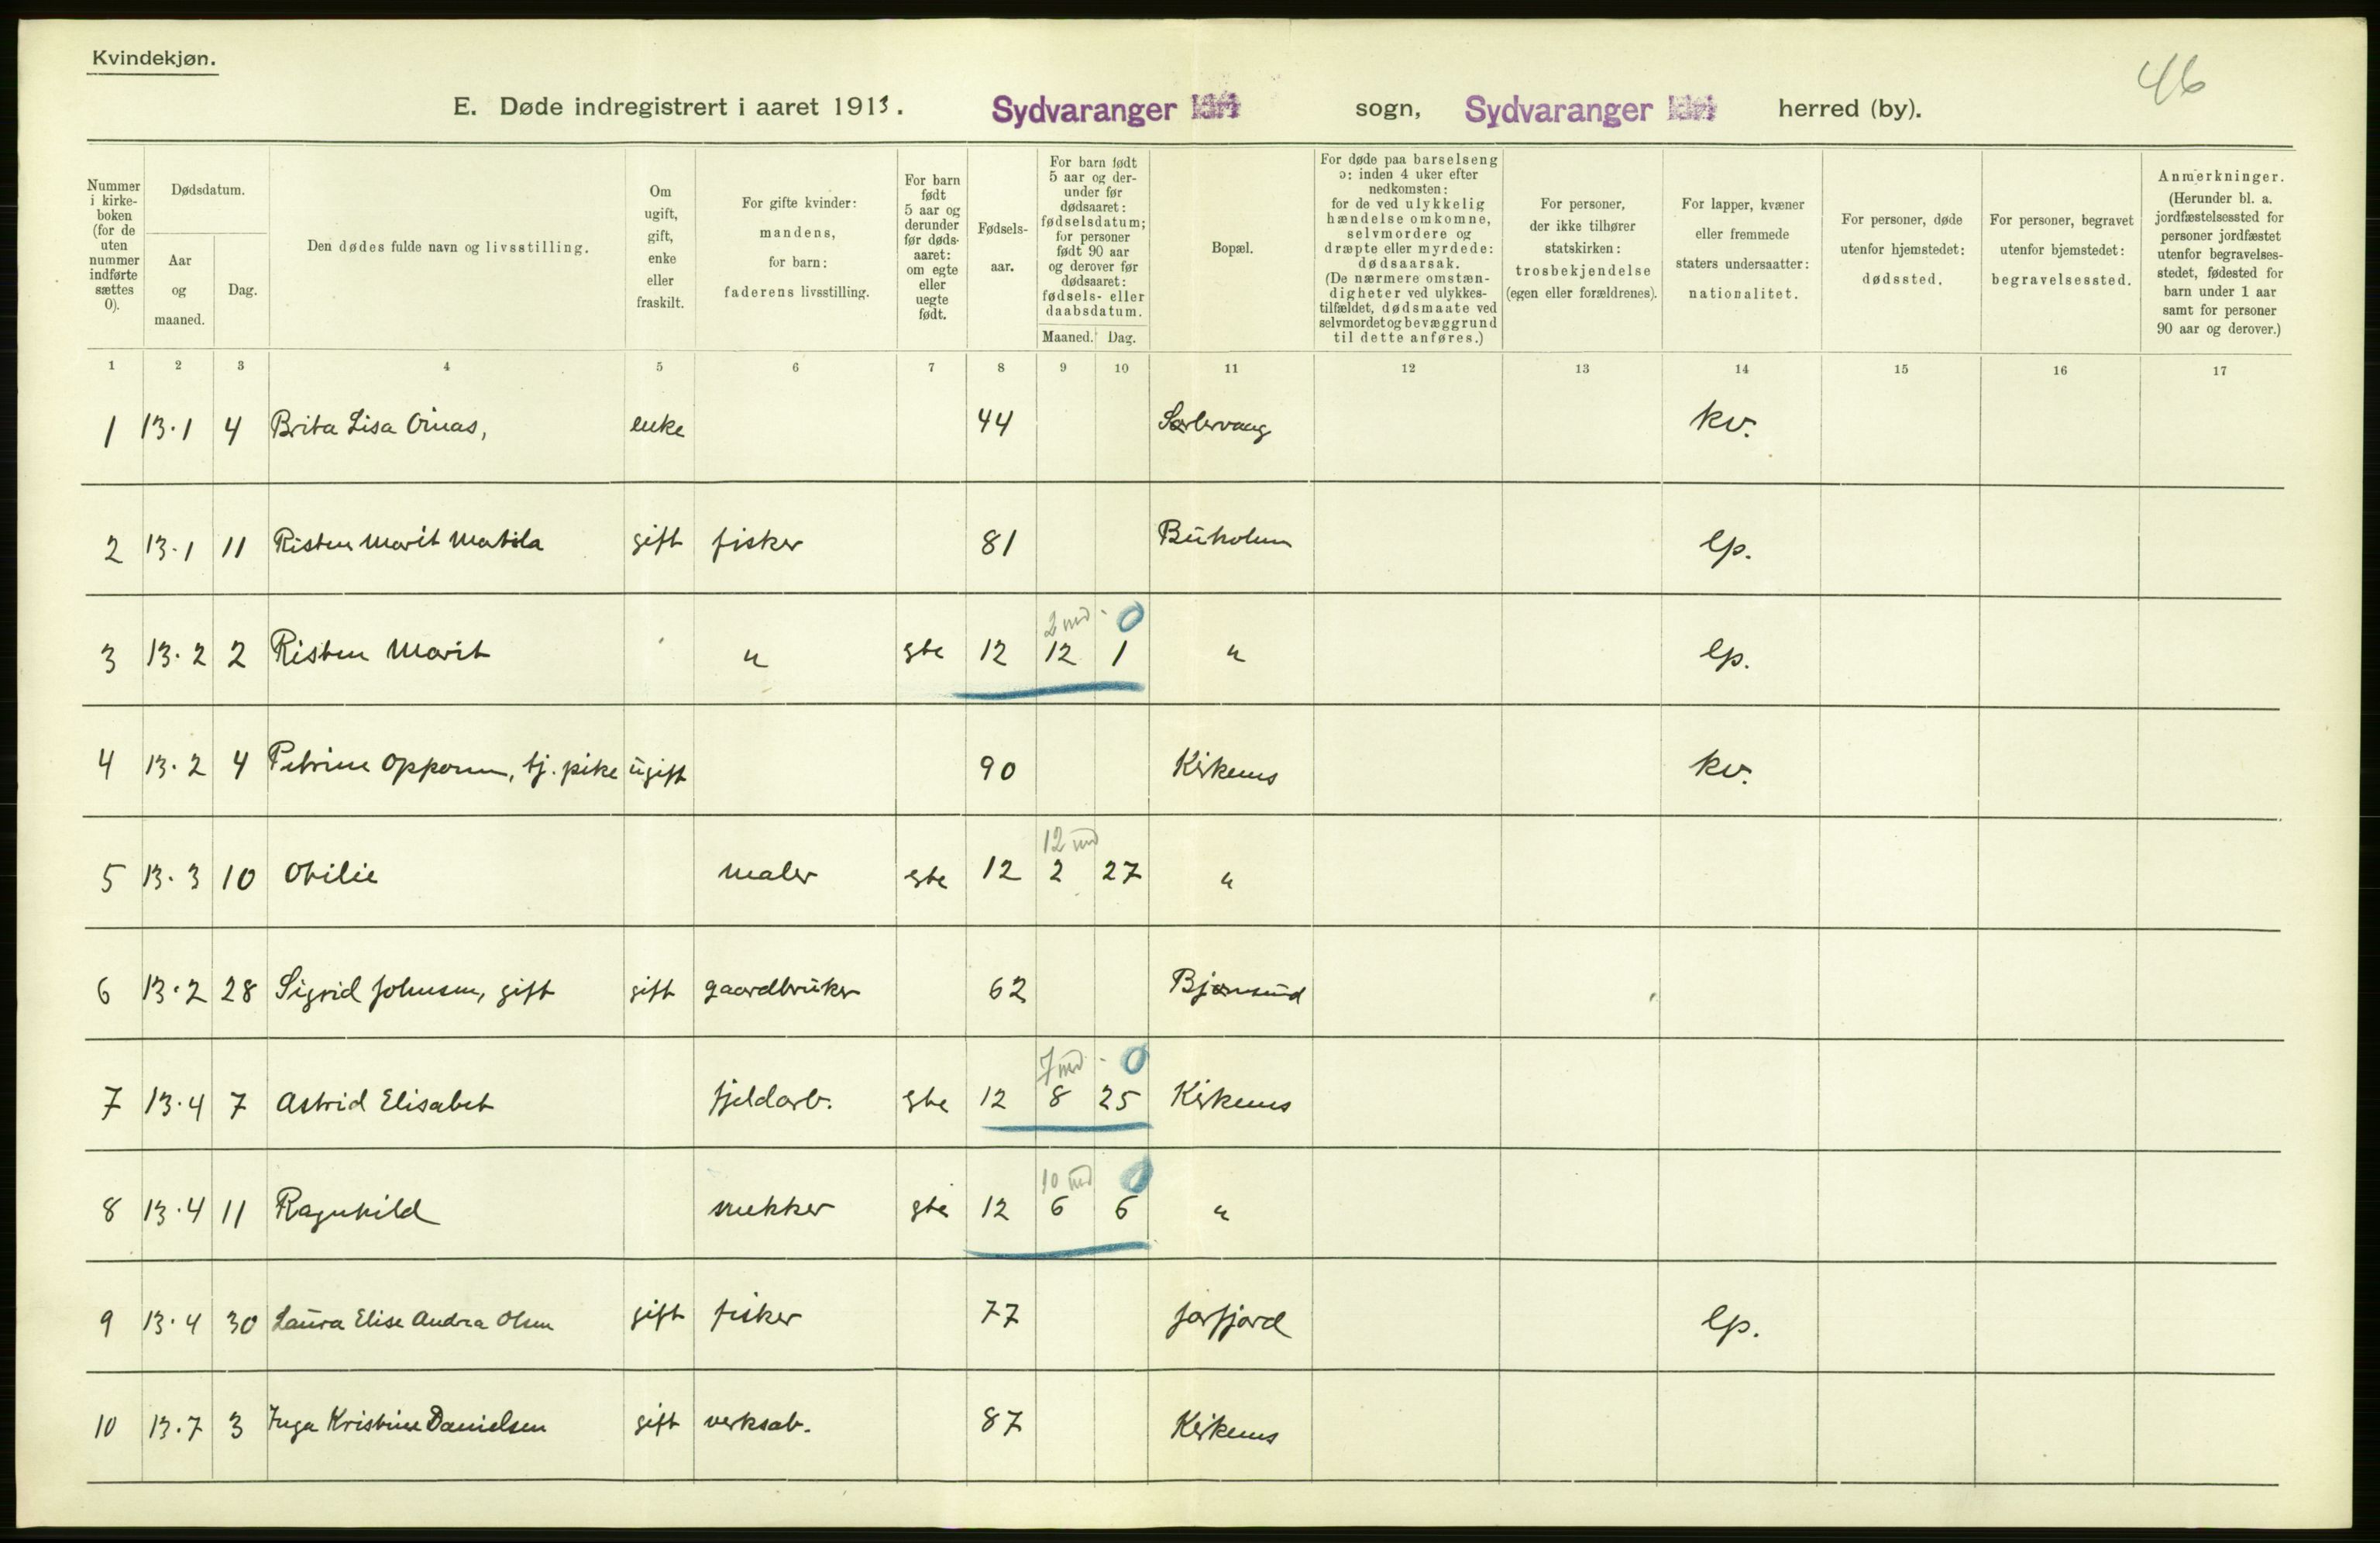 Kvindekjøn.
46
E. Døde indregistrert i aaret 1913. Sydvaranger sogn, Sydvaranger herred (by).
Nummer i kirkeboken (for de uten nummer indførte sættes 0).
Dødsdatum.
Aar og maaned.
Dag.
Den dødes fulde navn og livsstilling.
Om ugift, gift, enke eller fraskilt.
For gifte kvinder: mandens, for barn: faderens livsstilling.
For barn født 5 aar og derunder før dødsaaret: om egte eller uegte født.
Fødselsaar.
For barn født 5 aar og derunder før dødsaaret: fødselsdatum; for personer født 90 aar og derover før dødsaaret: fødsels- eller daabsdatum.
Maaned. Dag.
Bopæl.
For døde paa barselseng ɔ: inden 4 uker efter nedkomsten: for de ved ulykkelig hændelse omkomne, selvmordere og dræpte eller myrdede: dødsaarsak. (De nærmere omstændigheter ved ulykkestilfældet, dødsmaate ved selvmordet og bevæggrund til dette anføres.)
For personer, der ikke tilhører statskirken: trosbekjendelse (egen eller forældrenes).
For lapper, kvæner eller fremmede staters undersaatter: nationalitet.
For personer, døde utenfor hjemstedet: dødssted.
For personer, begravet utenfor bjemstedet: begravelsessted.
Anmerkninger. (Herunder bl. a. jordfæstelsessted for personer jordfæstet utenfor begravelsesstedet, fødested for barn under 1 aar samt for personer 90 aar og derover.)
1 2 3 4 5 6 7 8 9 10 11 12 13 14 15 16 17
1 13.1 4 Brita Lisa Oinas, enke 44 kv.
2 13.1 11 Risten Marit Matila gift fisker 81 Buholm lp.
2 md - 0
3 13.2 2 Risten Marit " gte 12 12 1 " lp.
4 13.2 4 Petrine , tj. pike ugift 90 Kirkenes kv.
12 md
5 13.3 10 Otilie maler gte 12 2 27 "
6 13.2 28 Sigrid Johnsen, gift gift gaardbruker 62 Bjørnsund
7 md - 0
7 13.4 7 Astrid Elisabet fjeldarb. gte 12 8 25 Kirkenes
10 md 0
8 13.4 11 Ragnhild snekker gte 12 6 6 "
9 13.4 30 Laura Elise Andrea Olsen gift fisker 77 Jarfjord lp.
10 13.7 3 Inga Kristine Danielsen gift verksab. 87 Kirkenes